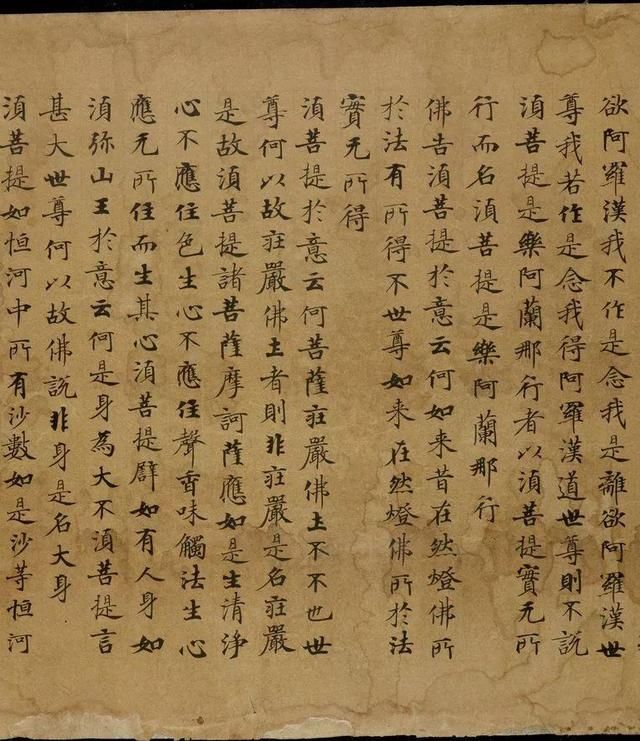 欲阿羅漢我不作是念我是離欲阿羅漢世
尊我若作是念我得阿羅漢道世尊則不說
湏菩提是樂阿蘭那行者以湏菩提實无所
行而名湏菩提是樂阿蘭那行
佛告湏菩提於意云何如来昔在然燈佛所
於法有所得不世尊如来在然燈佛所於法
實无所得
湏菩提於意云何菩薩莊嚴佛土不不也世
尊何以故莊嚴佛土者則非莊嚴是名莊嚴
是故湏菩提諸菩薩摩訶薩應如是生清淨
心不應住色生心不應住聲香味觸法生心
應无所住而生其心湏菩提辟如有人身如
湏弥山王於意云何是身為大不湏菩提言
甚大世尊何以故佛說非身是名大身
湏菩提如恒河中所有沙數如是沙等恒河